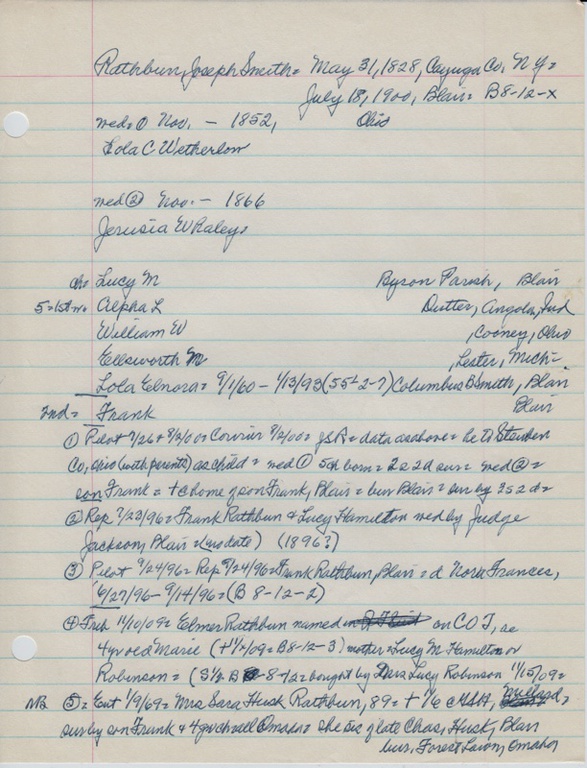 Rathbun, Joseph Smith = May 31, 1828, Cayuga Co. N.Y. =
July 18, 1900, Blair = B8-12-X
wed = ① Nov. - 1852, Ohio
Eola C Wetherlow
wed ② Nov. - 1866
Jerusia W Raley =
ch = Lucy M Byron Parish, Blair
5 = 1st w. Alpha L Dutter, Angola, Ind
William W , Cooney, Ohio
Ellsworth M , Lester, Mich =
Lola Elnora = 9/1/60 - 1/13/93 (55L2-7) Columbus B Smith, Blair
2nd = Frank Blair
① Pilot 7/26 + 8/2/00 = Courier 8/2/00 = JSR = data as above = he to Steuben
Co, Ohio (with parents) as child = wed ① 5ch born = 2s 2d sur = wed ② =
son Frank = + @ home of son Frank, Blair = bur Blair = sur by 3s 2d =
② Rep 7/23/96 = Frank Rathbun & Lucy Hamilton wed by Judge
Jackson, Blair = (no date) (1896?)
③ Pilot 9/24/96 = Rep 9/24/96 = Frank Rathbun, Blair = d Nora Frances,
6/27/96 - 9/14/96 = (B 8-12-2)
④ Trib 11/10/09 = Elmer Rathbun named in on COT, as
4yr old Marie (+ /09 = B8-12-3) mother = Lucy M Hamilton or
Robinson = (S½ B 8-12 = bought by Mrs Lucy Robinson 11/15/09 =
NB ⑤ = Ent 1/9/69 = Mrs Sara Husk Rathbun, 89 = + 1/6 @
sur by son Frank & 4 gr ch all Omaha = she sis of late Chas. Husk, Blair
bur. Forest Lawn, Omaha